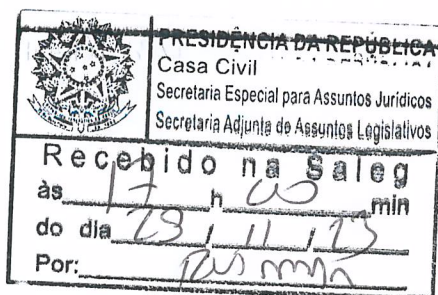 PRESIDÊNCIA DA REPÚBLICA
Casa Civil
Secretaria Especial para Assuntos Jurídicos
Secretaria Adjunta de Assuntos Legislativos
Recebido na Saleg
às 17 h 00 min
do dia 29 / 11 / 23
Por: